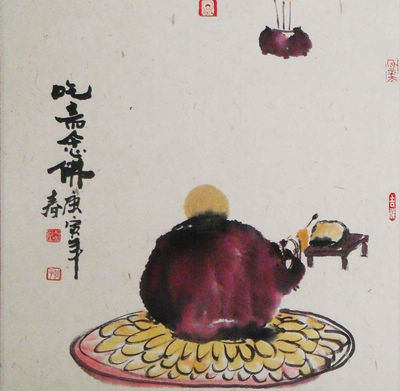 吃斋念佛
庚寅年